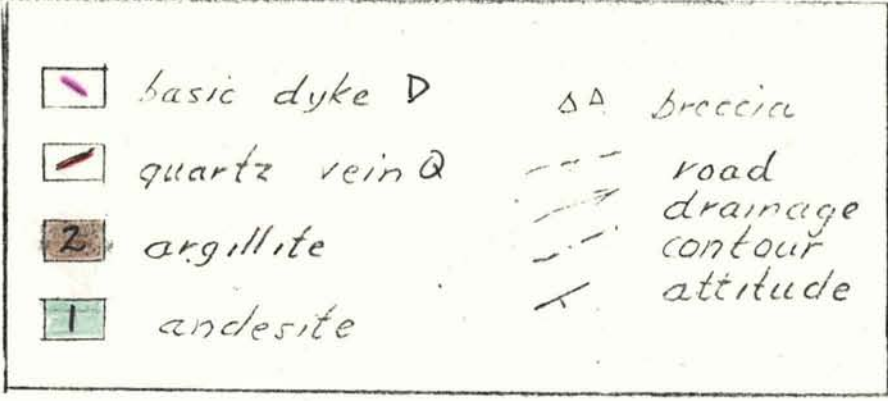 basic dyke D
quartz vein Q
2 argillite
1 andesite
breccia
road
drainage
contour
attitude